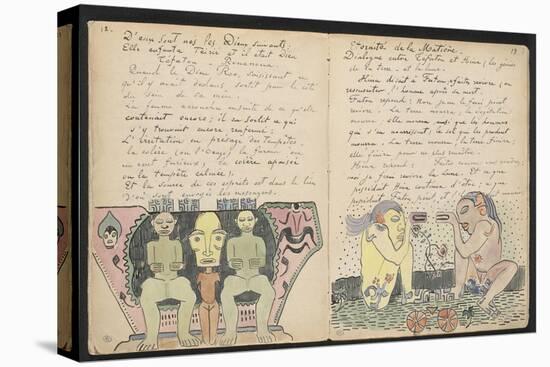 12.
D'eux sont nés les Dieux suivants:
Elle enfanta Téirii et il était Dieu
Téfatou - Rouanoua.
Quand le Dieu Roo, saisissant
qu'il y avait dedans, sortit par le côté
du sein de sa mère.
La femme accoucha ensuite de ce qu'elle
contenait encore; il en sortit ce qui
s'y trouvait encore renfermé:
L'irritation ou présage des tempêtes.
la colère (ou l'orage), la fureur (ou
un vent furieux); la colère apaisée
ou la tempête calmée);
Et la source de ces esprits est dans le lieu
d'où sont envoyés les messagers.
13
Eternité de la Matière.
Dialogue entre Téfatou et Hina (les génies
de la terre - et la lune.
Hina disait à Fatou: faites revivre (ou
ressusciter l'homme après sa mort.
Fatou répond: Non je ne le ferai point
revivre. La terre mourra; la végétation
mourra; elle mourra, ainsi que les hommes
qui s'en nourrissent; le sol qui les produit
mourra. La terre mourra, la terre finira;
elle finira pour ne plus renaître.
Hina répond: Faites comme vous voudrez;
moi je ferai revivre la Lune. Et ce que
possédait Hina continua d'être; ce que
possédait Fatou périt